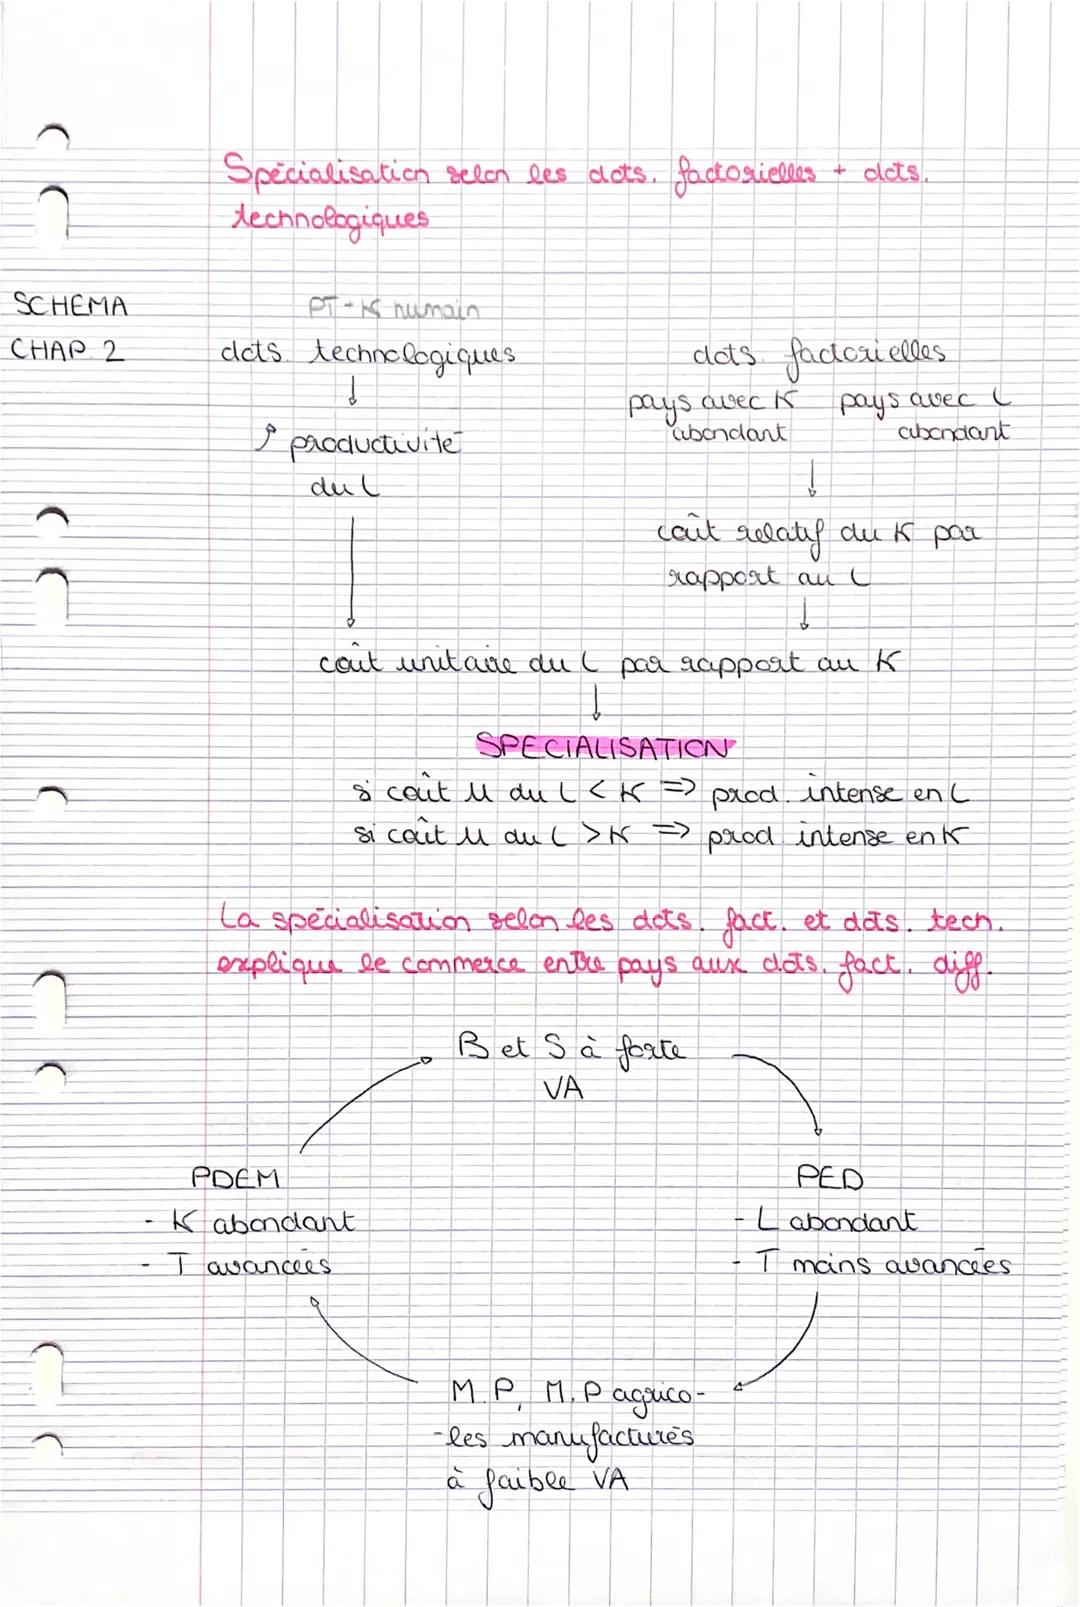 Spécialisation selon les dots. factorielles + dots.
technologiques
SCHEMA
CHAP 2
PT + K humain
dots. technologiques
↓
↗ productivité
du L
↓
dots. factorielles
pays avec K abondant
pays avec L abondant
↓
coût relatif du K par
rapport au L
↓
coût unitaire du L par rapport au K
↓
SPECIALISATION
si coût U du L < K => prod. intense en L
si coût U du L > K => prod. intense en K
La spécialisation selon les dots. fact. et dots. tech.
explique le commerce entre pays aux dots. fact. diff.
B et S à forte
VA
PDEM
- K abondant
- T avancées
PED
- L abondant
- T moins avancées
M.P, M.P agrico-
-les manufacturés
à faible VA